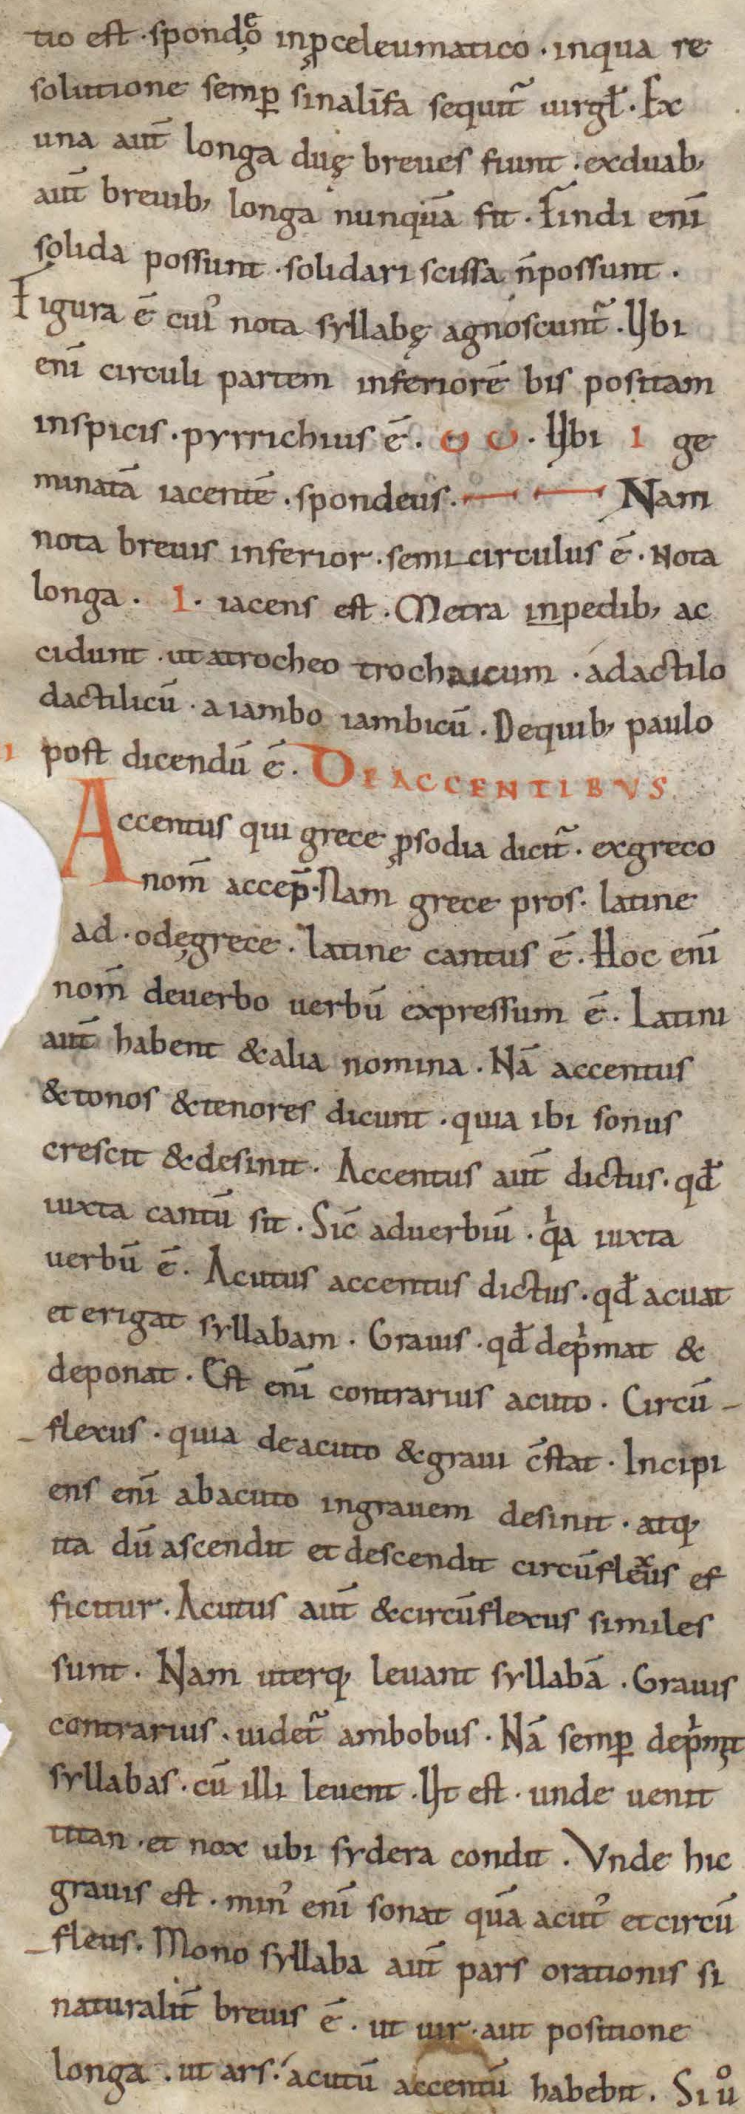 tio est · spondẹo inꝓceleumatico · inqua re
solutione semꝑ sinalifa sequit᷑ uirgł · Ex
una aut̄ longa duę breues fiunt · exduab;
aut̄ breuib; longa nunquā fit · Findi enī
solida possunt · solidari scissa n̄possunt ·
Figura ē cuiꝰ nota syllabę agnoscunt᷑ · Ubi
enī circuli partem inferiorē bis positam
inspicis · pyrrichius ē · ◡ ◡ · Ubi I ge
minatā iacentē · spondeus · — — Nam
nota breuis inferior · semicirculus ē · Nota
longa · I · iacens est · Metra inpedib; ac
cidunt · ut atrocheo trochaicum · adactilo
dactilicū · aiambo iambicū · Dequib; paulo
post dicendū ē · DE ACCENTIBVS
Accentus qui grece ꝓsodia dicit᷑ · exgreco
nom̄ accep̄ · Nam grece pros · latine
ad · odęgrece · latine cantus ē · Hoc enī
nom̄ deuerbo uerbū expressum ē · Latini
aut̄ habent &alia nomina · Nā accentus
&tonos &tenores dicunt · quia ibi sonus
crescit &desinit · Accentus aut̄ dictus · qđ
iuxta cantū sit · Sic̄ aduerbiū · qͥa iuxta
uerbū ē · Acutus accentus dictus · qđ acuat
et erigat syllabam · Grauis · qđ depͥmat &
deponat · Est enī contrarius acuto · Circū-
-flexus · quia deacuto &graui c̄stat · Incipi
ens enī abacuto ingrauem desinit · atq;
ita dū ascendit et descendit circūflexus ef
ficitur · Acutus aut̄ &circūflexus similes
sunt · Nam uterq; leuant syllabā · Grauis
contrarius · uidet᷑ ambobus · Nā semꝑ depͥmit
syllabas · cū illi leuent · Ut est · unde uenit
titan · et nox ubi sydera condit · Vnde hic
grauis est · minꝰ enī sonat quā acutꝰ etcircū
-fleus · Mono syllaba aut̄ pars orationis si
naturalit̄ breuis ē · ut uir · aut positione
longa · ut ars · acutū accentū habebit · Si uͦ